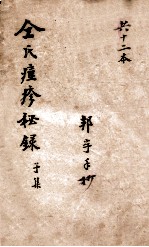 共十二本
邦宁手抄
仝氏痘疹秘録
子集